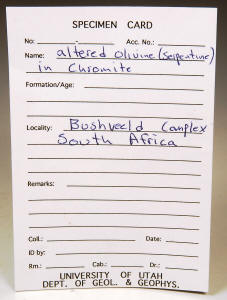 SPECIMEN CARD
No: Acc. No.:
Name: altered olivine (serpentine)
in Chromite
Formation/Age:
Locality: Bushveeld Complex
South Africa
Remarks:
Coll.: Date:
ID by:
Rm.: Cab.: Dr.:
UNIVERSITY OF UTAH
DEPT. OF GEOL. & GEOPHYS.